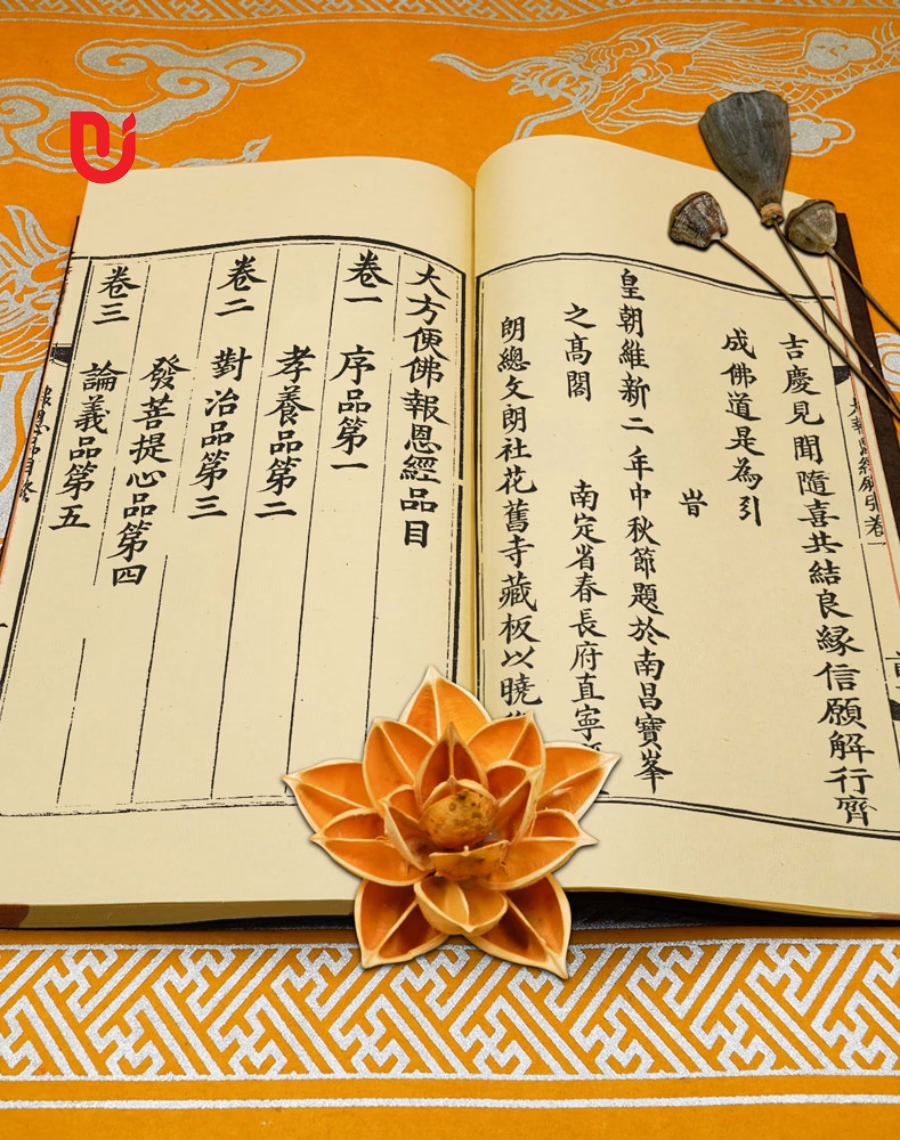 吉慶見聞隨喜共結良緣信願解行齊
成佛道是為引
旹
皇朝維新二年中秋節題於南昌寶峯
之高閣 南定省春長府直寧
朗總文朗社花舊寺藏板以曉
大方便佛報恩經品目
卷一 序品第一
孝養品第二
卷二 對治品第三
發菩提心品第四
卷三 論義品第五